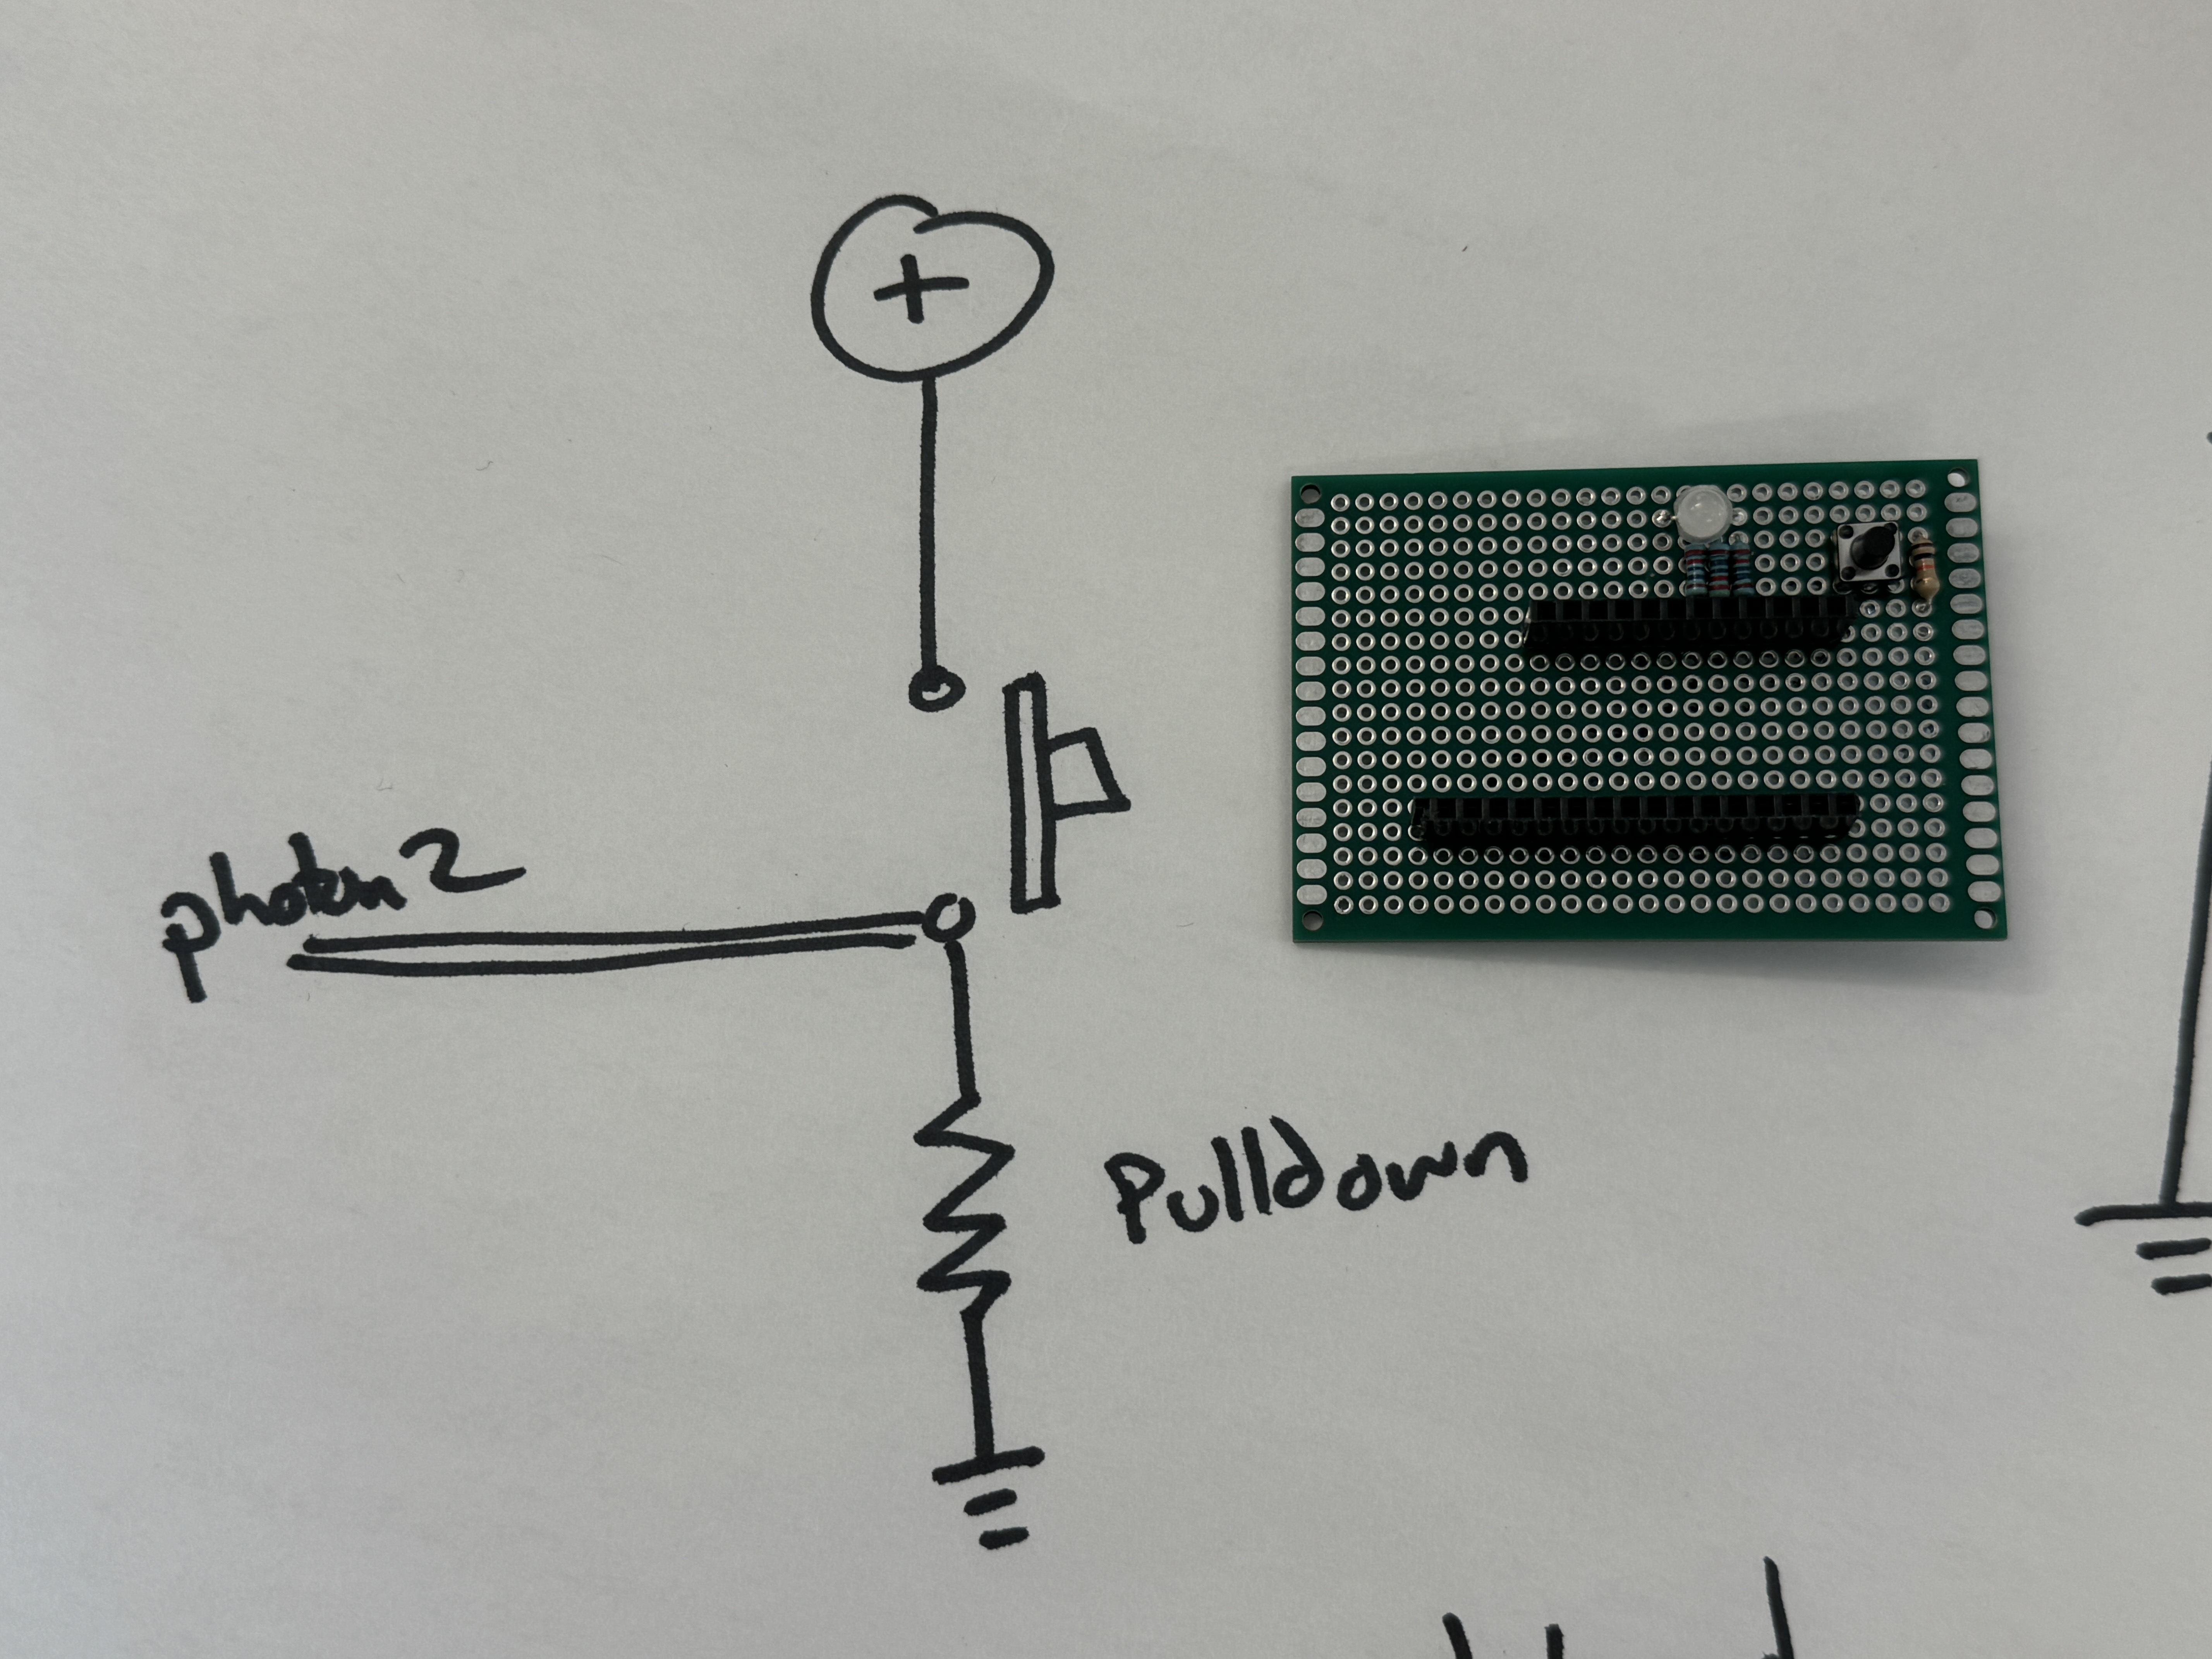 Photon 2
+
Pulldown